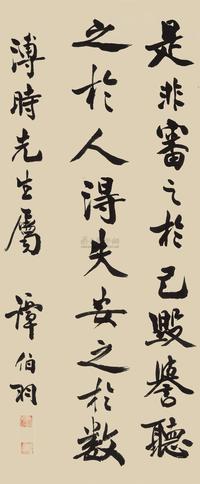 是非審之於己毀譽聽
之於人得失安之於數
溥時先生屬 譚伯羽